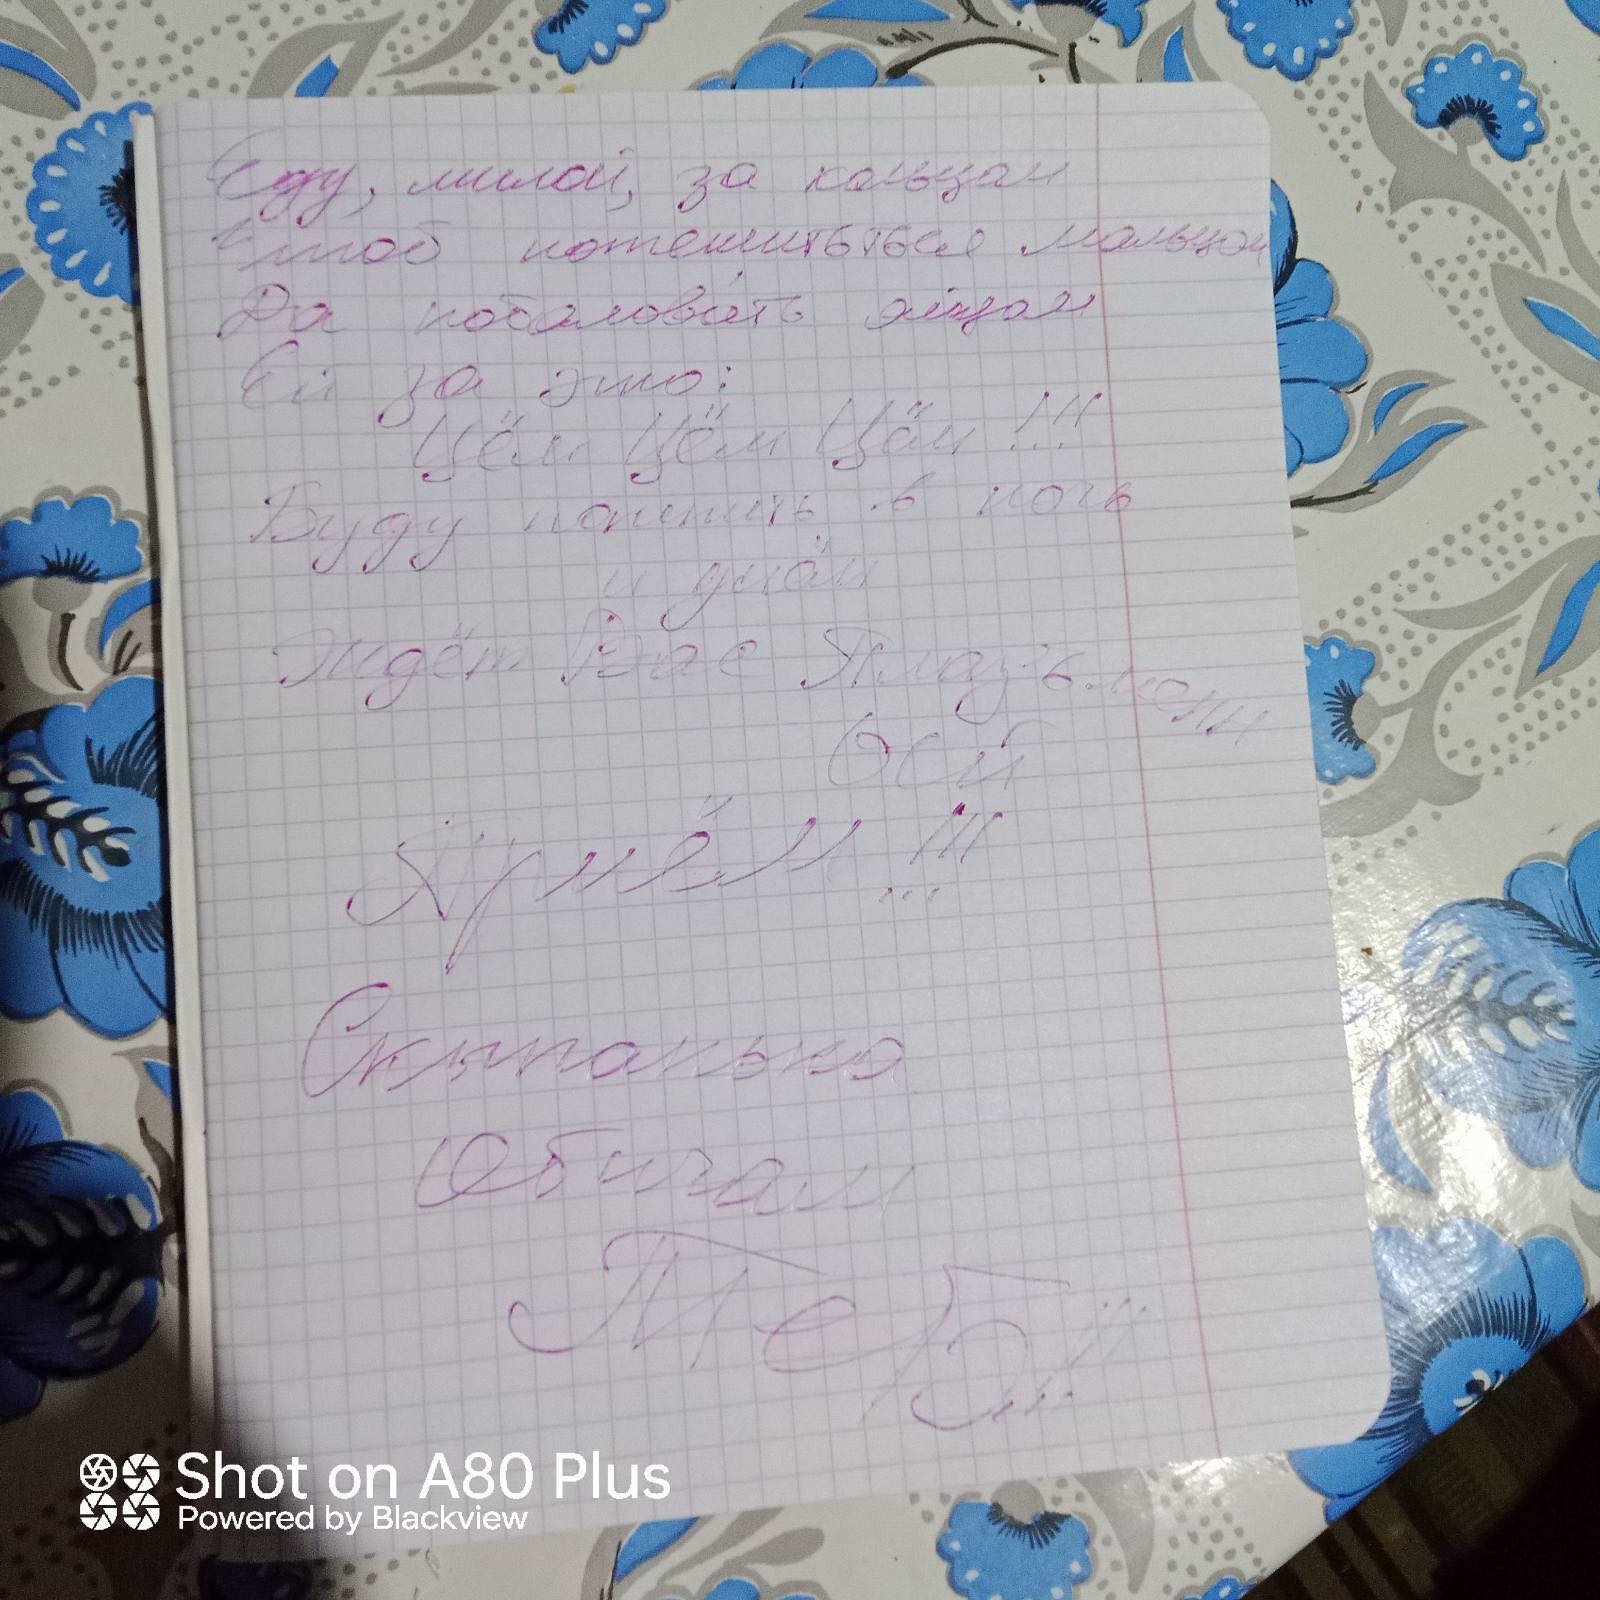 Еду, милой, за кольцом
Чтоб потешиться мальцом
Да побаловать яйцом
Ей за это:
Цём Цём Цём !!!
Буду помнить в ночь
и днём
Ждёт Вас
Осй
Ярмём !!!
Скупанько
Обичам
ТеБ !!!
Shot on A80 Plus
Powered by Blackview